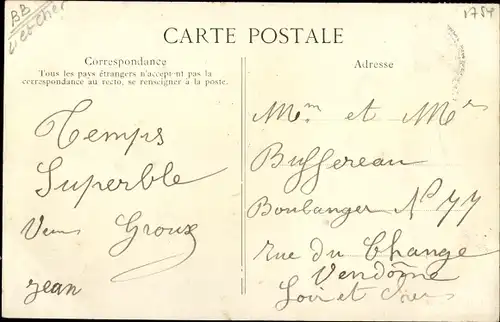 BB
CARTE POSTALE
1754
Correspondance
Tous les pays étrangers n'acceptent pas la
correspondance au recto, se renseigner à la poste.
Adresse
Temps
Superble
Groux
Jean
Mm et Mrs
Buffereau
Boulanger No 77
rue du Change
Vendôme
Loir et Cher